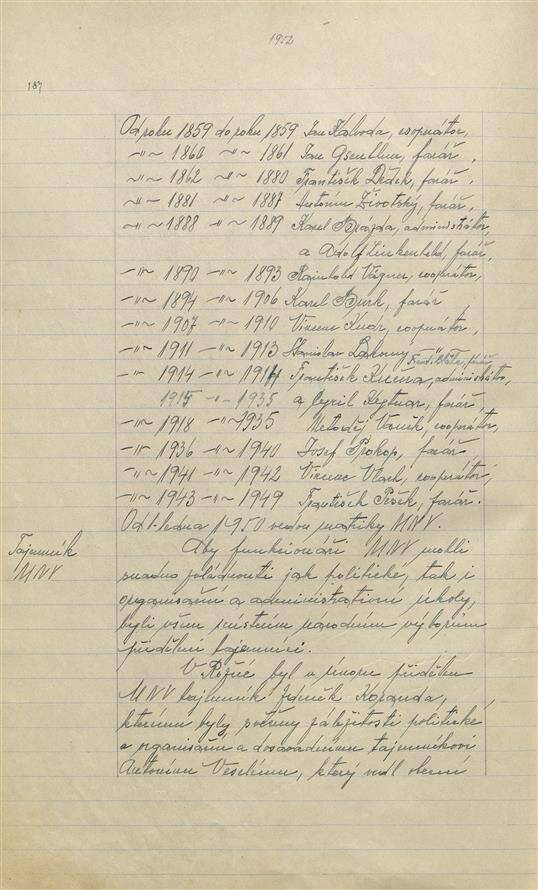 1952
187
Od roku 1859 do roku 1859 Jan Kaboda, cooperátor,
-"- 1860 -"- 1861 Jan, farář,
-"- 1862 -"- 1880 František Dědek, farář,
-"- 1881 -"- 1887 Antonín Životský, farář,
-"- 1888 -"- 1889 Karel, administrátor,
a Adolf Linkenheld, farář,
-"- 1890 -"- 1893 Rainhold Vágner, cooperátor,
-"- 1894 -"- 1906 Karel Burk, farář,
-"- 1907 -"- 1910 Vincenc, cooperátor,
-"- 1911 -"- 1913 Stanislav farář
-"- 1914 -"- 1914 František Kučera, administrátor,
1915 -"- 1935 a Cyril, farář,
-"- 1918 -"- 1935 Metoděj Vaněk, cooperátor,
-"- 1936 -"- 1940 Josef Prokop, farář,
-"- 1941 -"- 1942 Vincenc Vlach, cooperátor,
-"- 1943 -"- 1949 František Pršek, farář.
Od 1. ledna 1950 vedou matriky MNV.
Tajemník
MNV
Aby funkcionáři MNV mohli
snadno zvládnouti jak politické, tak i
organisační a administrativní úkoly,
byli všem místním národním výborům
přiděleni tajemníci.
V byl v únoru přidělen
MNV tajemník Zdeněk Koranda,
kterému byly svěřeny záležitosti politické
a organisační a dosavadnímu tajemníkovi
Antonínu Veselému, který vedl obecní